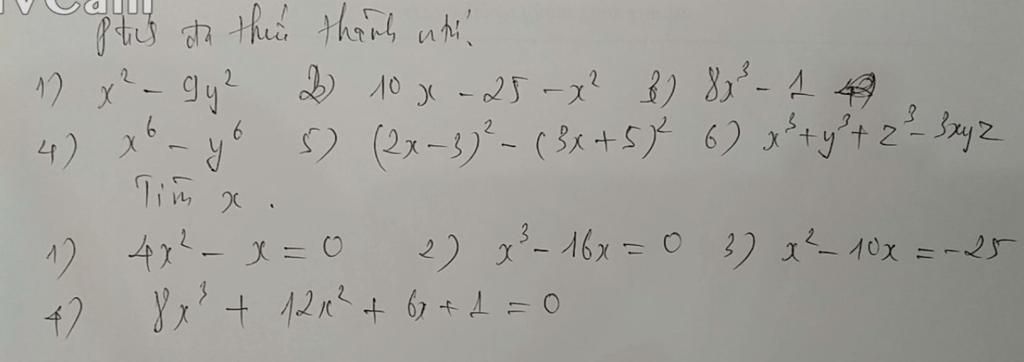 Cam
ptích đa thức thành ntử.
1) x² - 9y² 2) 10x - 25 - x² 3) 8x³ - 1
4) x⁶ - y⁶ 5) (2x-3)² - (3x+5)² 6) x³+y³+z³-3xyz
Tìm x.
1) 4x² - x = 0 2) x³ - 16x = 0 3) x² - 10x = -25
4) 8x³ + 12x² + 6x + 1 = 0